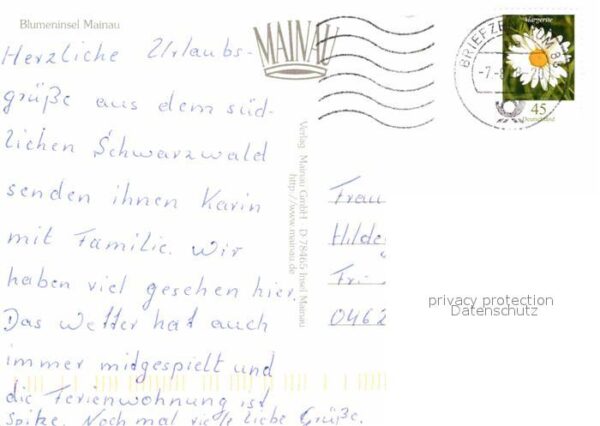 Blumeninsel Mainau
MAINAU
Herzliche Urlaubs-
grüße aus dem süd-
lichen Schwarzwald
senden ihnen Karin
mit Familie. Wir
haben viel gesehen hier.
Das Wetter hat auch
immer midgespielt und
die Ferienwohnung ist
Spitze. Noch mal viele liebe Grüße.
Verlag Mainau GmbH D-78465 Insel Mainau
http://www.mainau.de
BRIEFZENTRUM 88
Margerite
45
Deutschland
Frau
Hilde
0462
privacy protection
Datenschutz